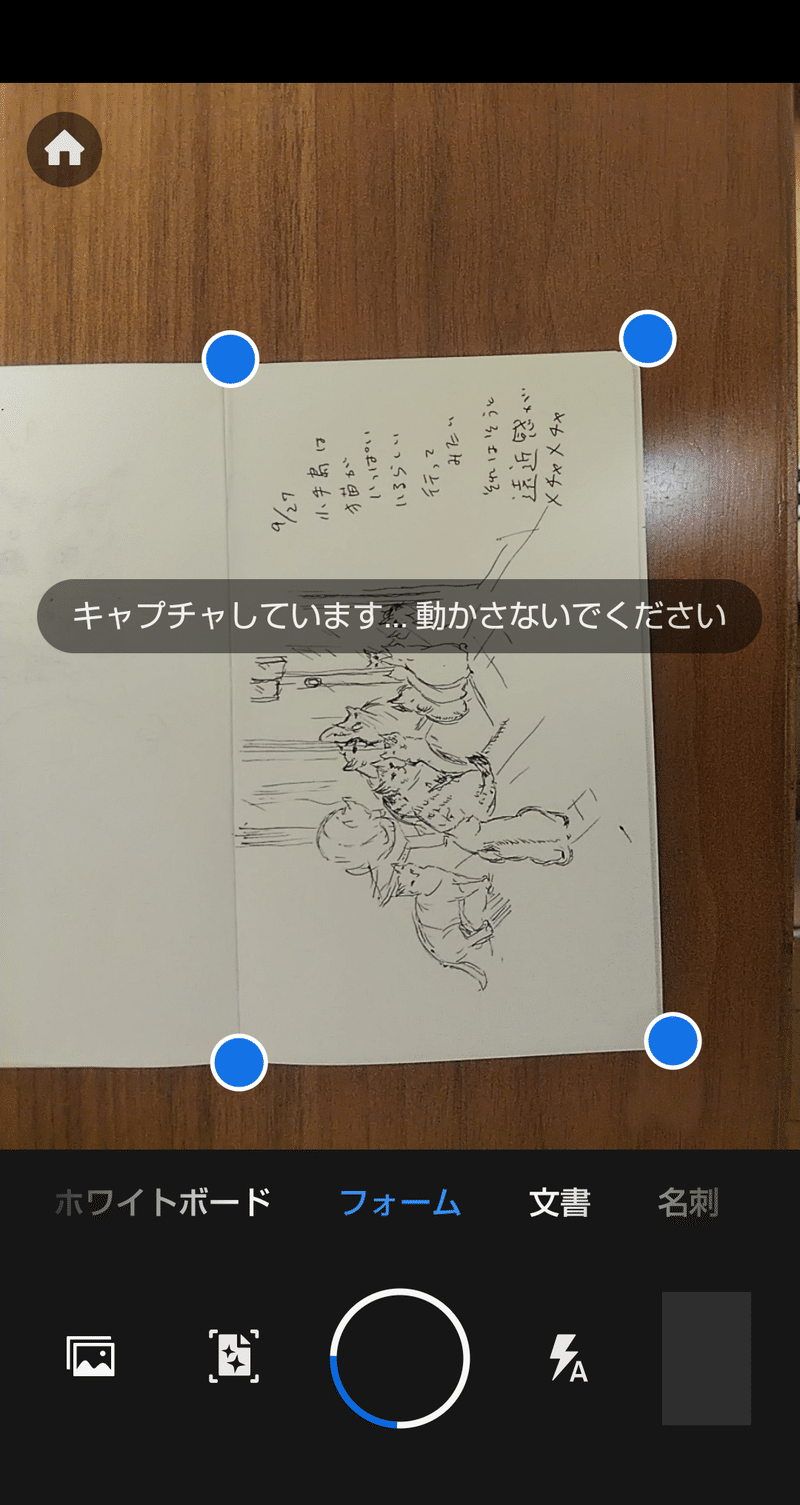 9/27
小手島は
猫が
いっぱい
いるらしい
行って
みたい
それはそうと
遠近感が
メチャメチャ
キャプチャしています... 動かさないでください
ホワイトボード
フォーム
文書
名刺
A